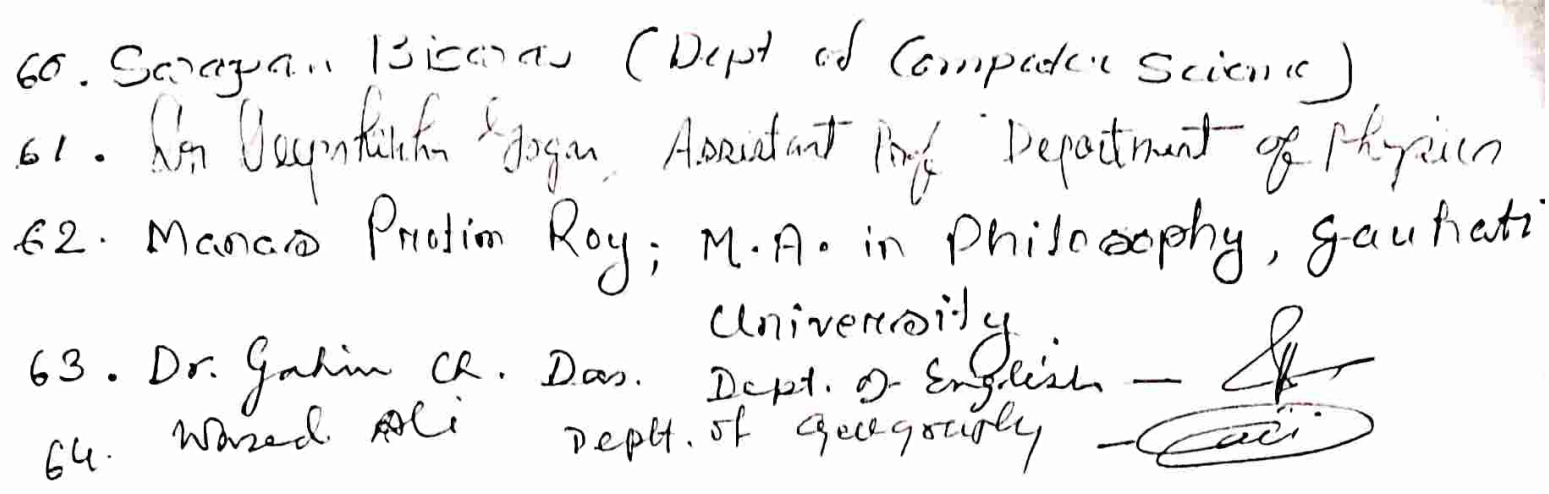 60. Sarayan Biswas (Dept of Computer Science)
61. Assistant Prof Department of Physics
62. Manas Protim Roy; M.A. in Philosophy, Gauhati
University
63. Dr. Gahin Ch. Das. Dept. of English —
64. Wazed Ali Deptt. of Geography — Ali